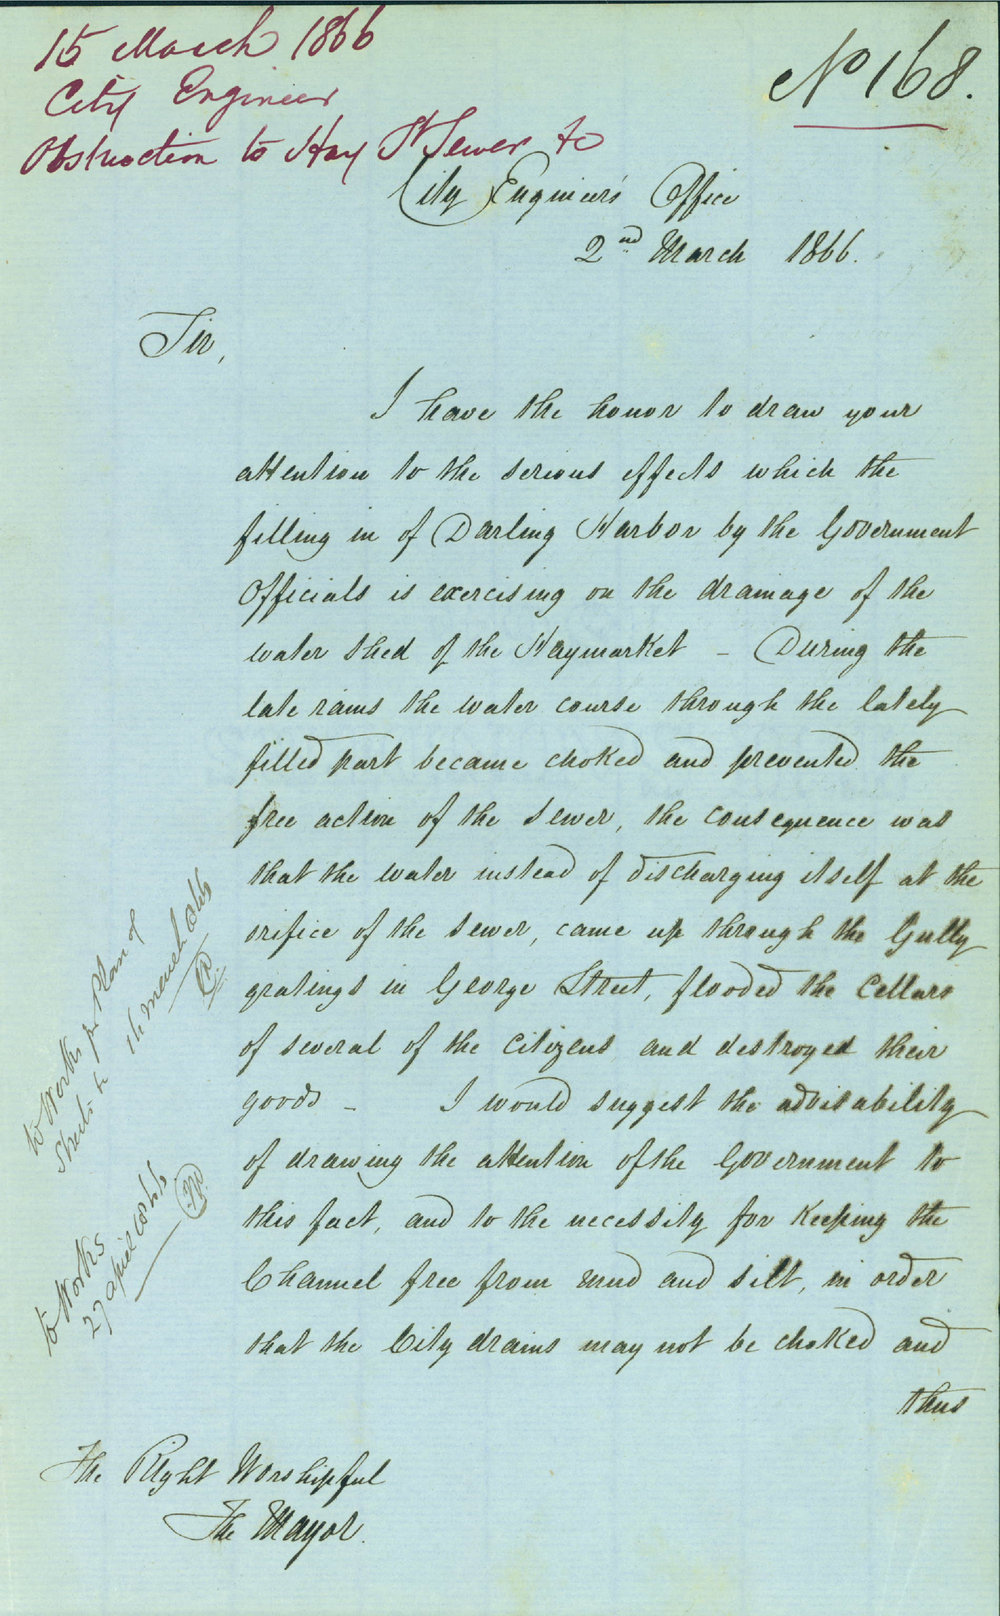 15 March 1866
City Engineer
Obstruction to Hay St Sewer &c
No 168.
City Engineer's Office
2nd March 1866.
Sir,
I have the honor to draw your
attention to the serious effects which the
filling in of Darling Harbor by the Government
Officials is exercising on the drainage of the
water shed of the Haymarket – During the
late rains the water course through the lately
filled part became choked and prevented the
free action of the sewer, the consequence was
that the water instead of discharging itself at the
orifice of the sewer, came up through the Gully
gratings in George Street, flooded the Cellars
of several of the Citizens and destroyed their
goods – I would suggest the advisability
of drawing the attention of the Government to
this fact, and to the necessity for keeping the
Channel free from mud and silt, in order
that the City drains may not be choked and
thus
The Right Worshipful
The Mayor.
to Works for Plan of
Streets &c
March 1866
to Works
27 April 1866